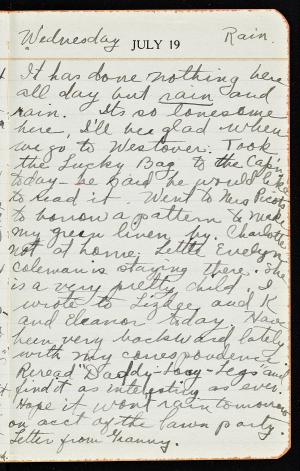 Wednesday JULY 19 Rain.
It has done nothing here
all day but rain and
rain. Its so lonesome
here, I'll be glad when
we go to Westover. Took
the Lucky Bag to the Capt.
today - he said he would like
to read it. Went to Mrs Picots
to borrow a pattern to make
my green linen by. Charlotte
not at home. Little Evelyn
Coleman is staying there. She
is a very pretty child. I
wrote to Lizdee and K
and Eleanor today. Have
been very backward lately
with my correspondence.
Reread "Daddy-Long-Legs" and
find it as interesting as ever.
Hope it wont rain tomorrow
on acct of the lawn party.
Letter from Granny.